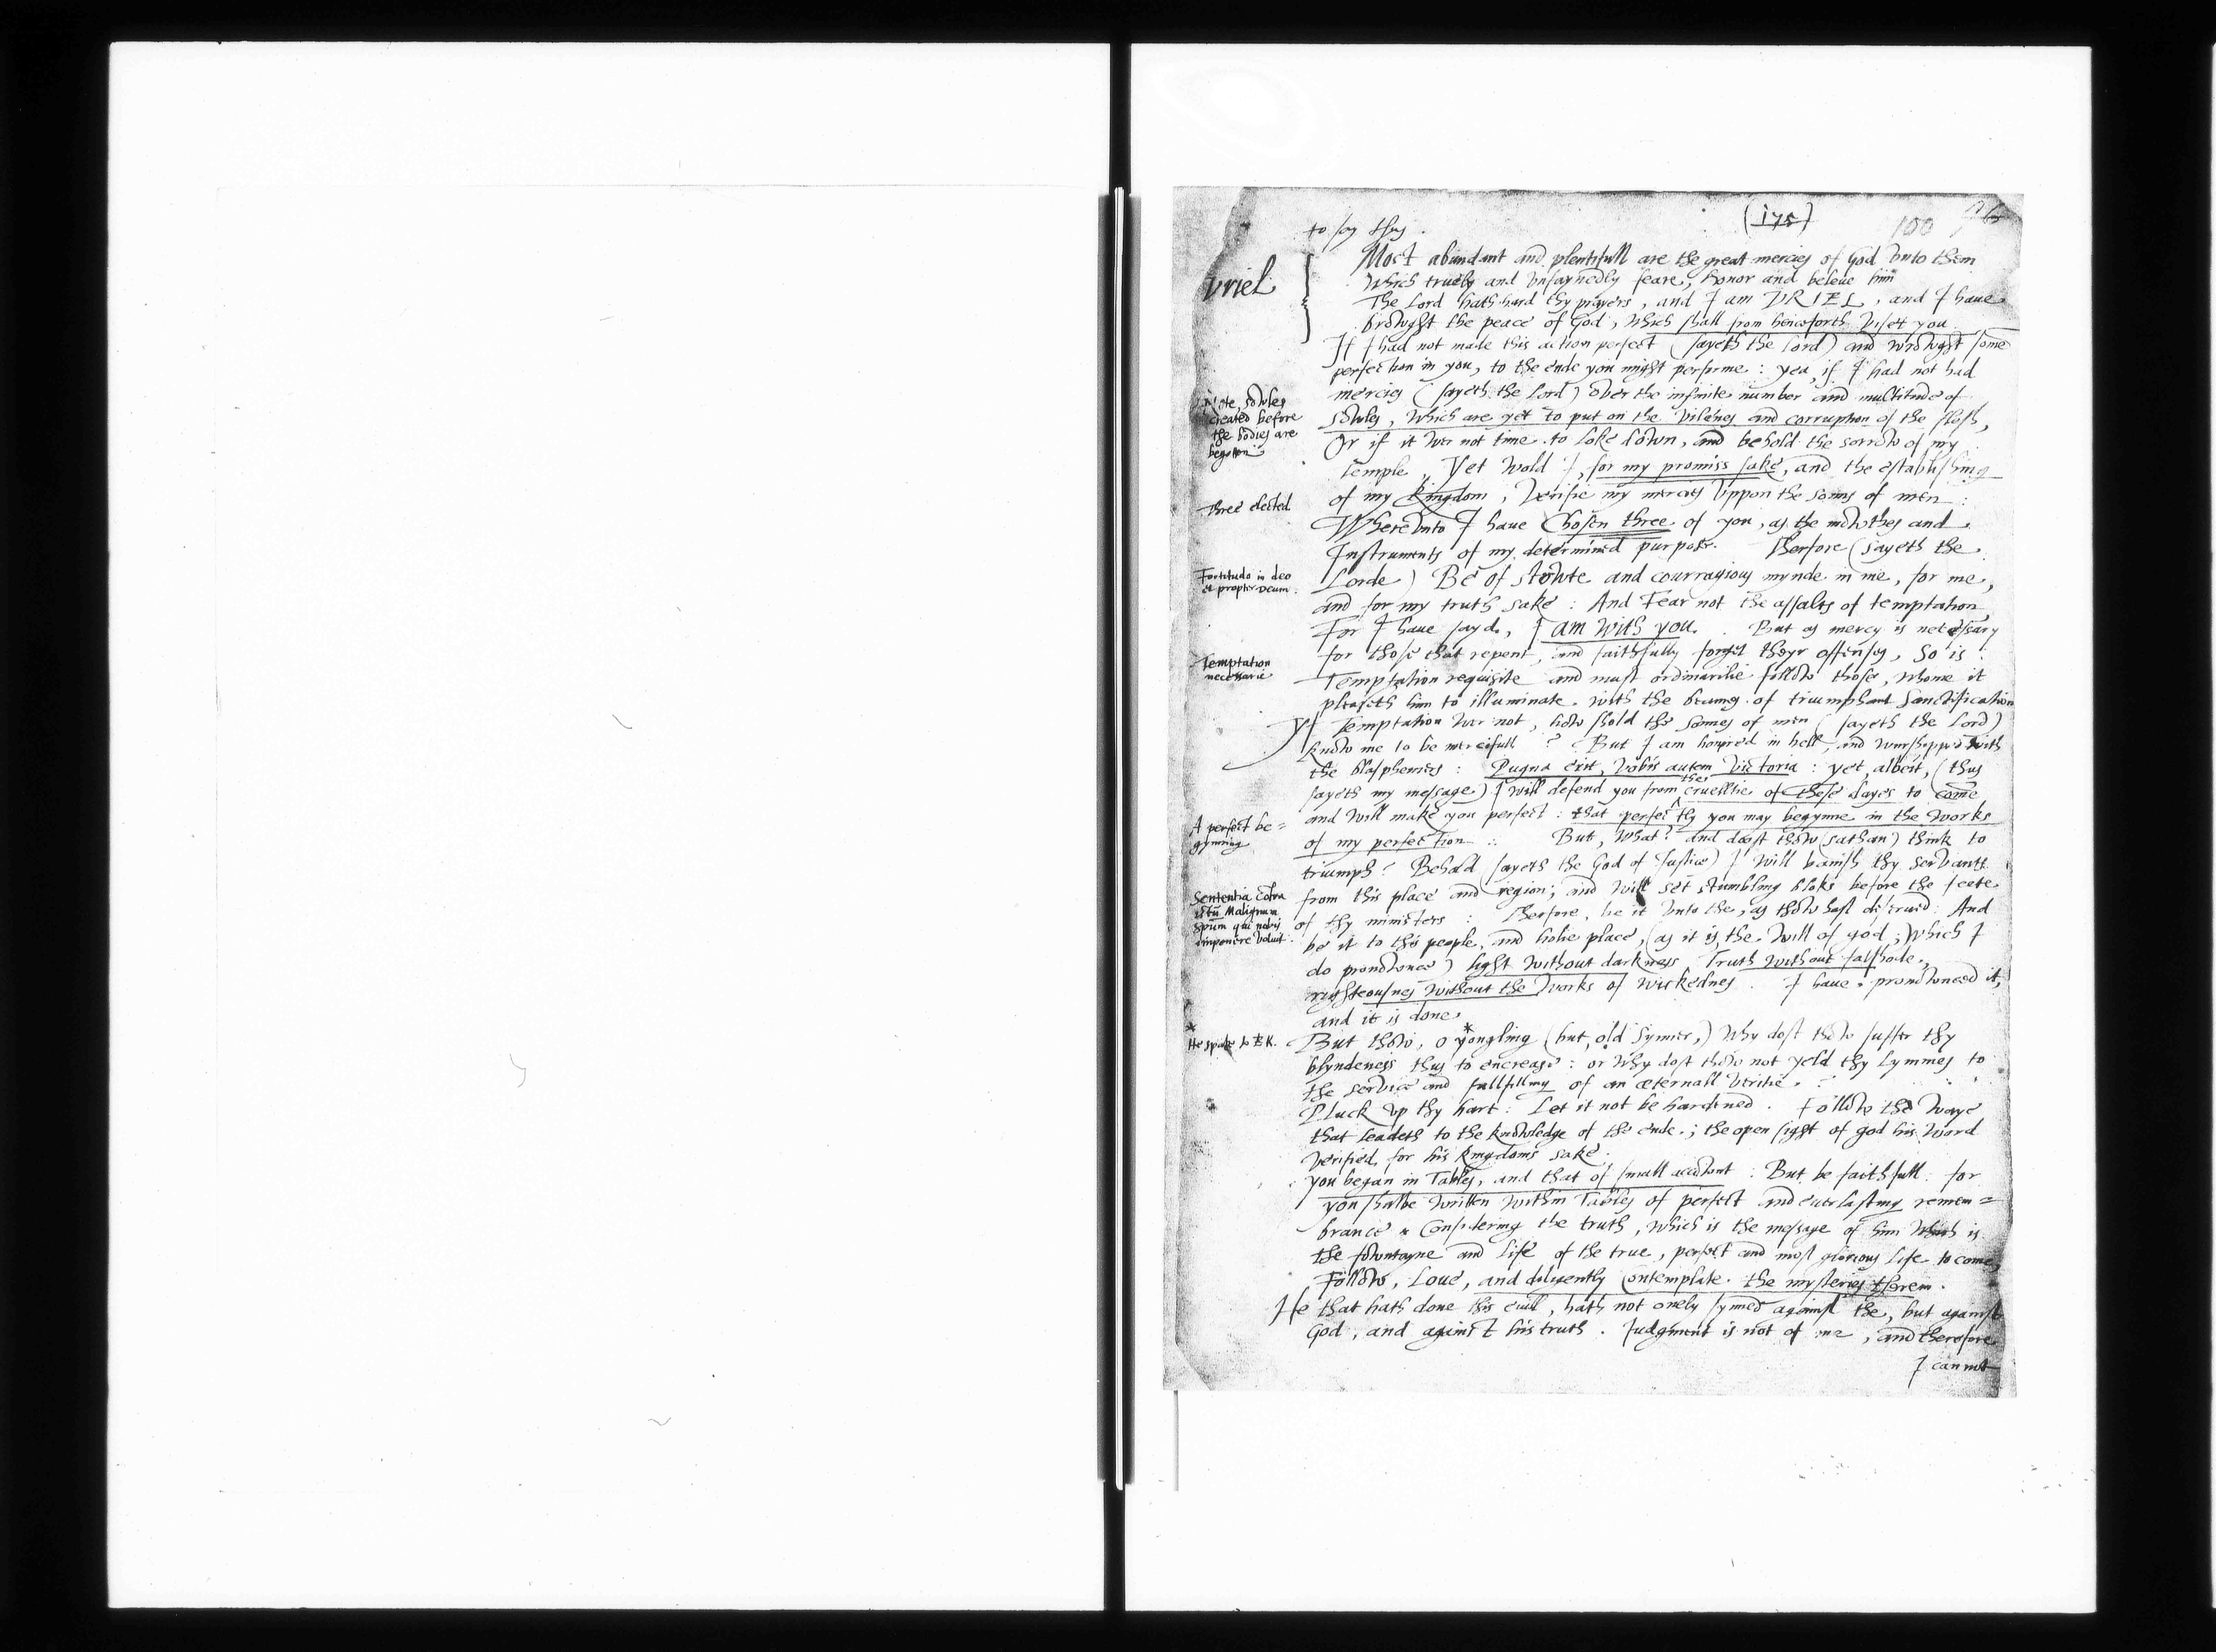 (175)
100 96
to say thus.
Most abundant and plentifull are the great mercies of God vnto them
Vriel
Which truely and vnfaynedly feare, honor and beleue him
The Lord hath hard thy prayers, and I am VRIEL, and I haue
browght the peace of God, which shall from hencforth viset you
If I had not made this action perfect (sayeth the Lord) and wrowght some
perfection in you, to the ende you might performe: yea, if I had not had
mercies (sayeth the Lord) ouer the infinite number and multitude of
Note, sowles
created before
the bodies are
begotten
sowles, which are yet to put on the vilenes and corruption of the flesh,
Or if it wer not time to loke down, and behold the sorrow of my
Temple, Yet wold I, for my promiss sake, and the establishing
of my kingdom, Verifie my mercies vppon the sonns of men:
Three elected
Wherevnto I haue Chosen three of you, as the mowthes and
Instruments of my determined purpose. Therfore (sayeth the
Fortitudo in deo
et propter deum.
Lorde) Be of stowte and courragious mynde in me, for me,
and for my truth sake: And Fear not the assalts of temptation
For I haue sayd, I am with you. But as mercy is necessary
for those that repent, and faithfully forget theyr offenses, So is
Temptation
necessarie
Temptation requisite and must ordinarilie follow those, whome it
pleaseth him to illuminate with the beams of triumphant sanctification
Yf Temptation wer not, how shold the sonnes of men (sayeth the Lord)
know me to be mercifull? But I am honored in hell, and wurshipped with
the blasphemers: Pugna erit, vobis autem Victoria: yet, albeit, (thus
sayeth my message) I will defend you from the cruelltie of these dayes to come
and will make you perfect: that perfectly you may begynne in the works
A perfect be=
gynning
of my perfection: But, what? and dost thow (sathan) think to
triumph? Behold (sayeth the God of Justice) I will banish thy servants
Sententia contra
istum Malignum
spum qui nobis
imponere voluit.
from this place and region; and will set stumbling bloks before the feete
of thy ministers: Therfore, be it vnto the, as thow hast deserued: And
be it to this people, and holie place, (as it is the will of god, which I
do pronownce) light without darknes, Truth without falshode,
righteousnes without the works of wickednes. I haue pronownced it,
and it is done.
*
He spake to EK.
But thow, o *yongling (but old synner,) why dost thow suffer thy
blyndeness thus to encrease: or why dost thow not yeld thy Lymmes to
the service and fullfilling of an æternall veritie.
Pluck vp thy hart: Let it not be hardened. Follow the waye
that leadeth to the knowledge of the ende; the open sight of god his word
verified, for his kingdoms sake.
you began in Tables, and that of small accownt: But be faithfull: for
you shalbe written within Tables of perfect and euerlasting remem=
brance Considering the truth, which is the message of him which is
the fowntayne and Life of the true, perfect and most glorious life to come
Follow, Loue, and diligently Contemplate the mysteries therein.
He that hath done this euill, hath not onely synned against the, but against
God, and against his truth. Judgment is not of me, and therefore
I cannot